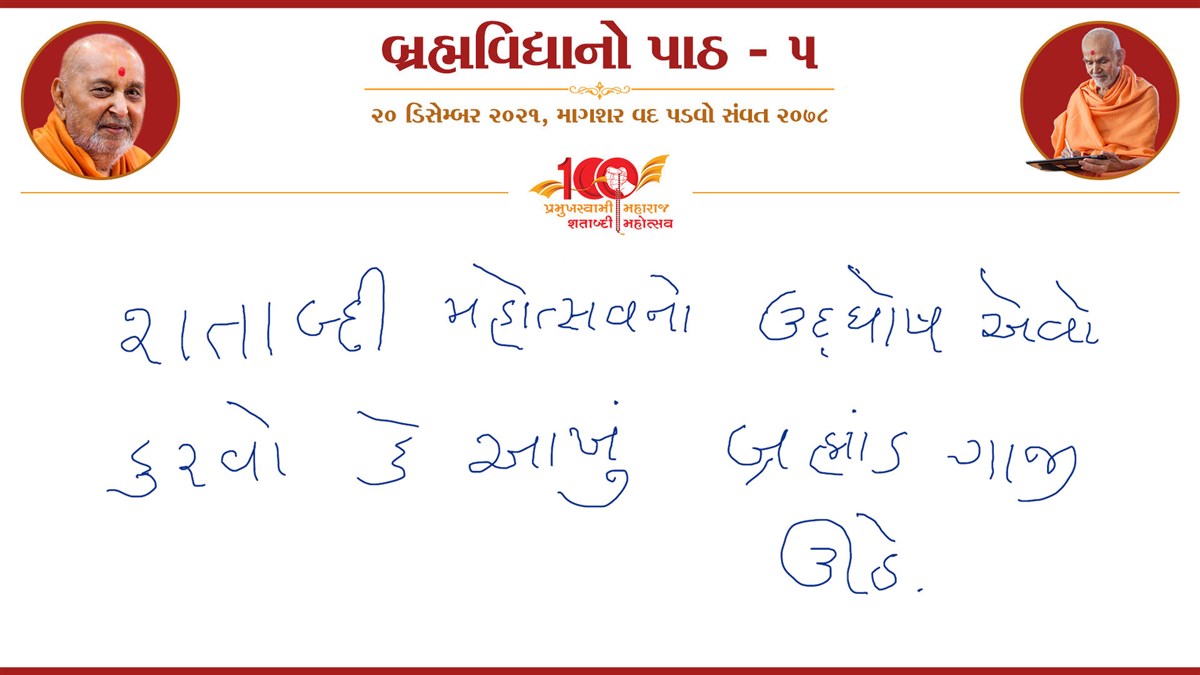 બ્રહ્મવિદ્યાનો પાઠ - ૫
૨૦ ડિસેમ્બર ૨૦૨૧, માગશર વદ પડવો સંવત ૨૦૭૮
100
પ્રમુખસ્વામી મહારાજ
શતાબ્દી મહોત્સવ
શતાબ્દી મહોત્સવનો ઉદ્ઘોષ એવો
કરવો કે આખું બ્રહ્માંડ ગાજી
ઊઠે.